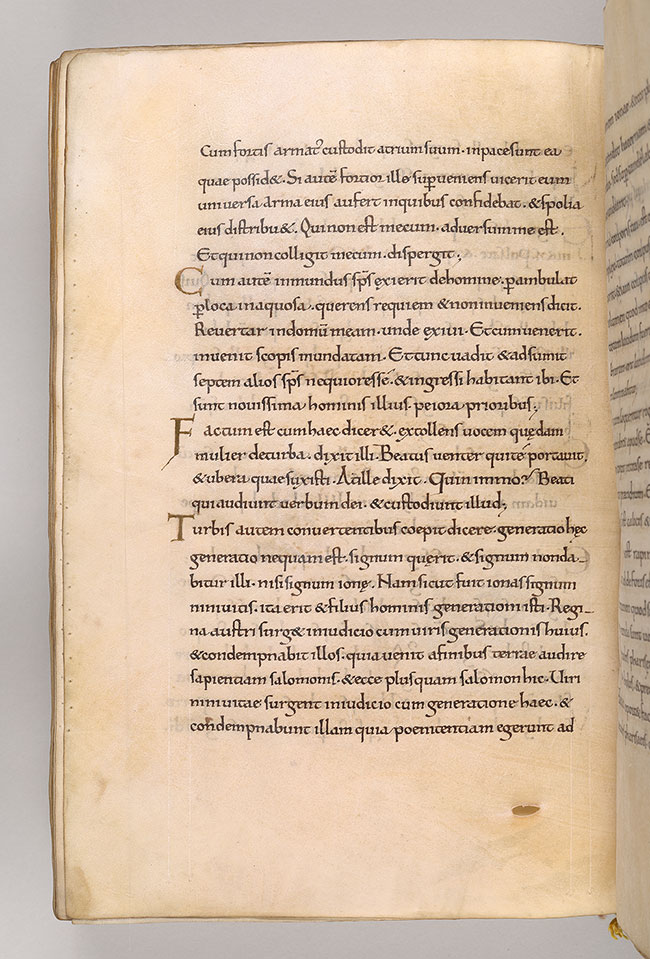 Cum fortis armat᾽ custodit atrium suum · in pace sunt ea
quae possid& · Si autē fortior illo sup̄veniens vicerit eum
universa arma eius aufert in quibus confidebat · & spolia
eius distribu& · Qui non est mecum · adversum me est ·
Et qui non colligit mecum · dispergit ;
Cum autē inmundus sp̄s exierit de homine · p̄ambulat
p̄ loca inaquosa · querens requiem & non inveniens dicit ·
Revertar in domū meam · unde exivi · Et cum venerit ·
invenit scopis mundatam · Et tunc vadit & adsumit
septem alios sp̄s nequiores se · & ingressi habitant ibi · Et
sunt novissima hominis illius peiora prioribus ;
Factum est cum haec dicer& · extollens vocem quędam
mulier de turba · dixit illi · Beatus venter qui te portavit,
& ubera quae suxisti · At ille dixit · Quin immo Beati
qui audiunt verbum dei · & custodiunt illud ;
Turbis autem convertentibus coepit dicere · generatio hęc
generatio nequam est · signum querit · & signum non da_
bitur illi · nisi signum ionę · Nam sicut fuit ionas signum
ninivitis · ita erit & filius hominis generationi isti · Regi_
na austri surg& in iudicio cum viris generationis huius ·
& condempnabit illos · quia venit a finibus terrae audire
sapientiam salomonis · & ecce plus quam salomon hic · Viri
ninivitae surgent in iudicio cum generatione haec · &
condempnabunt illam quia poenitentiam egerunt ad